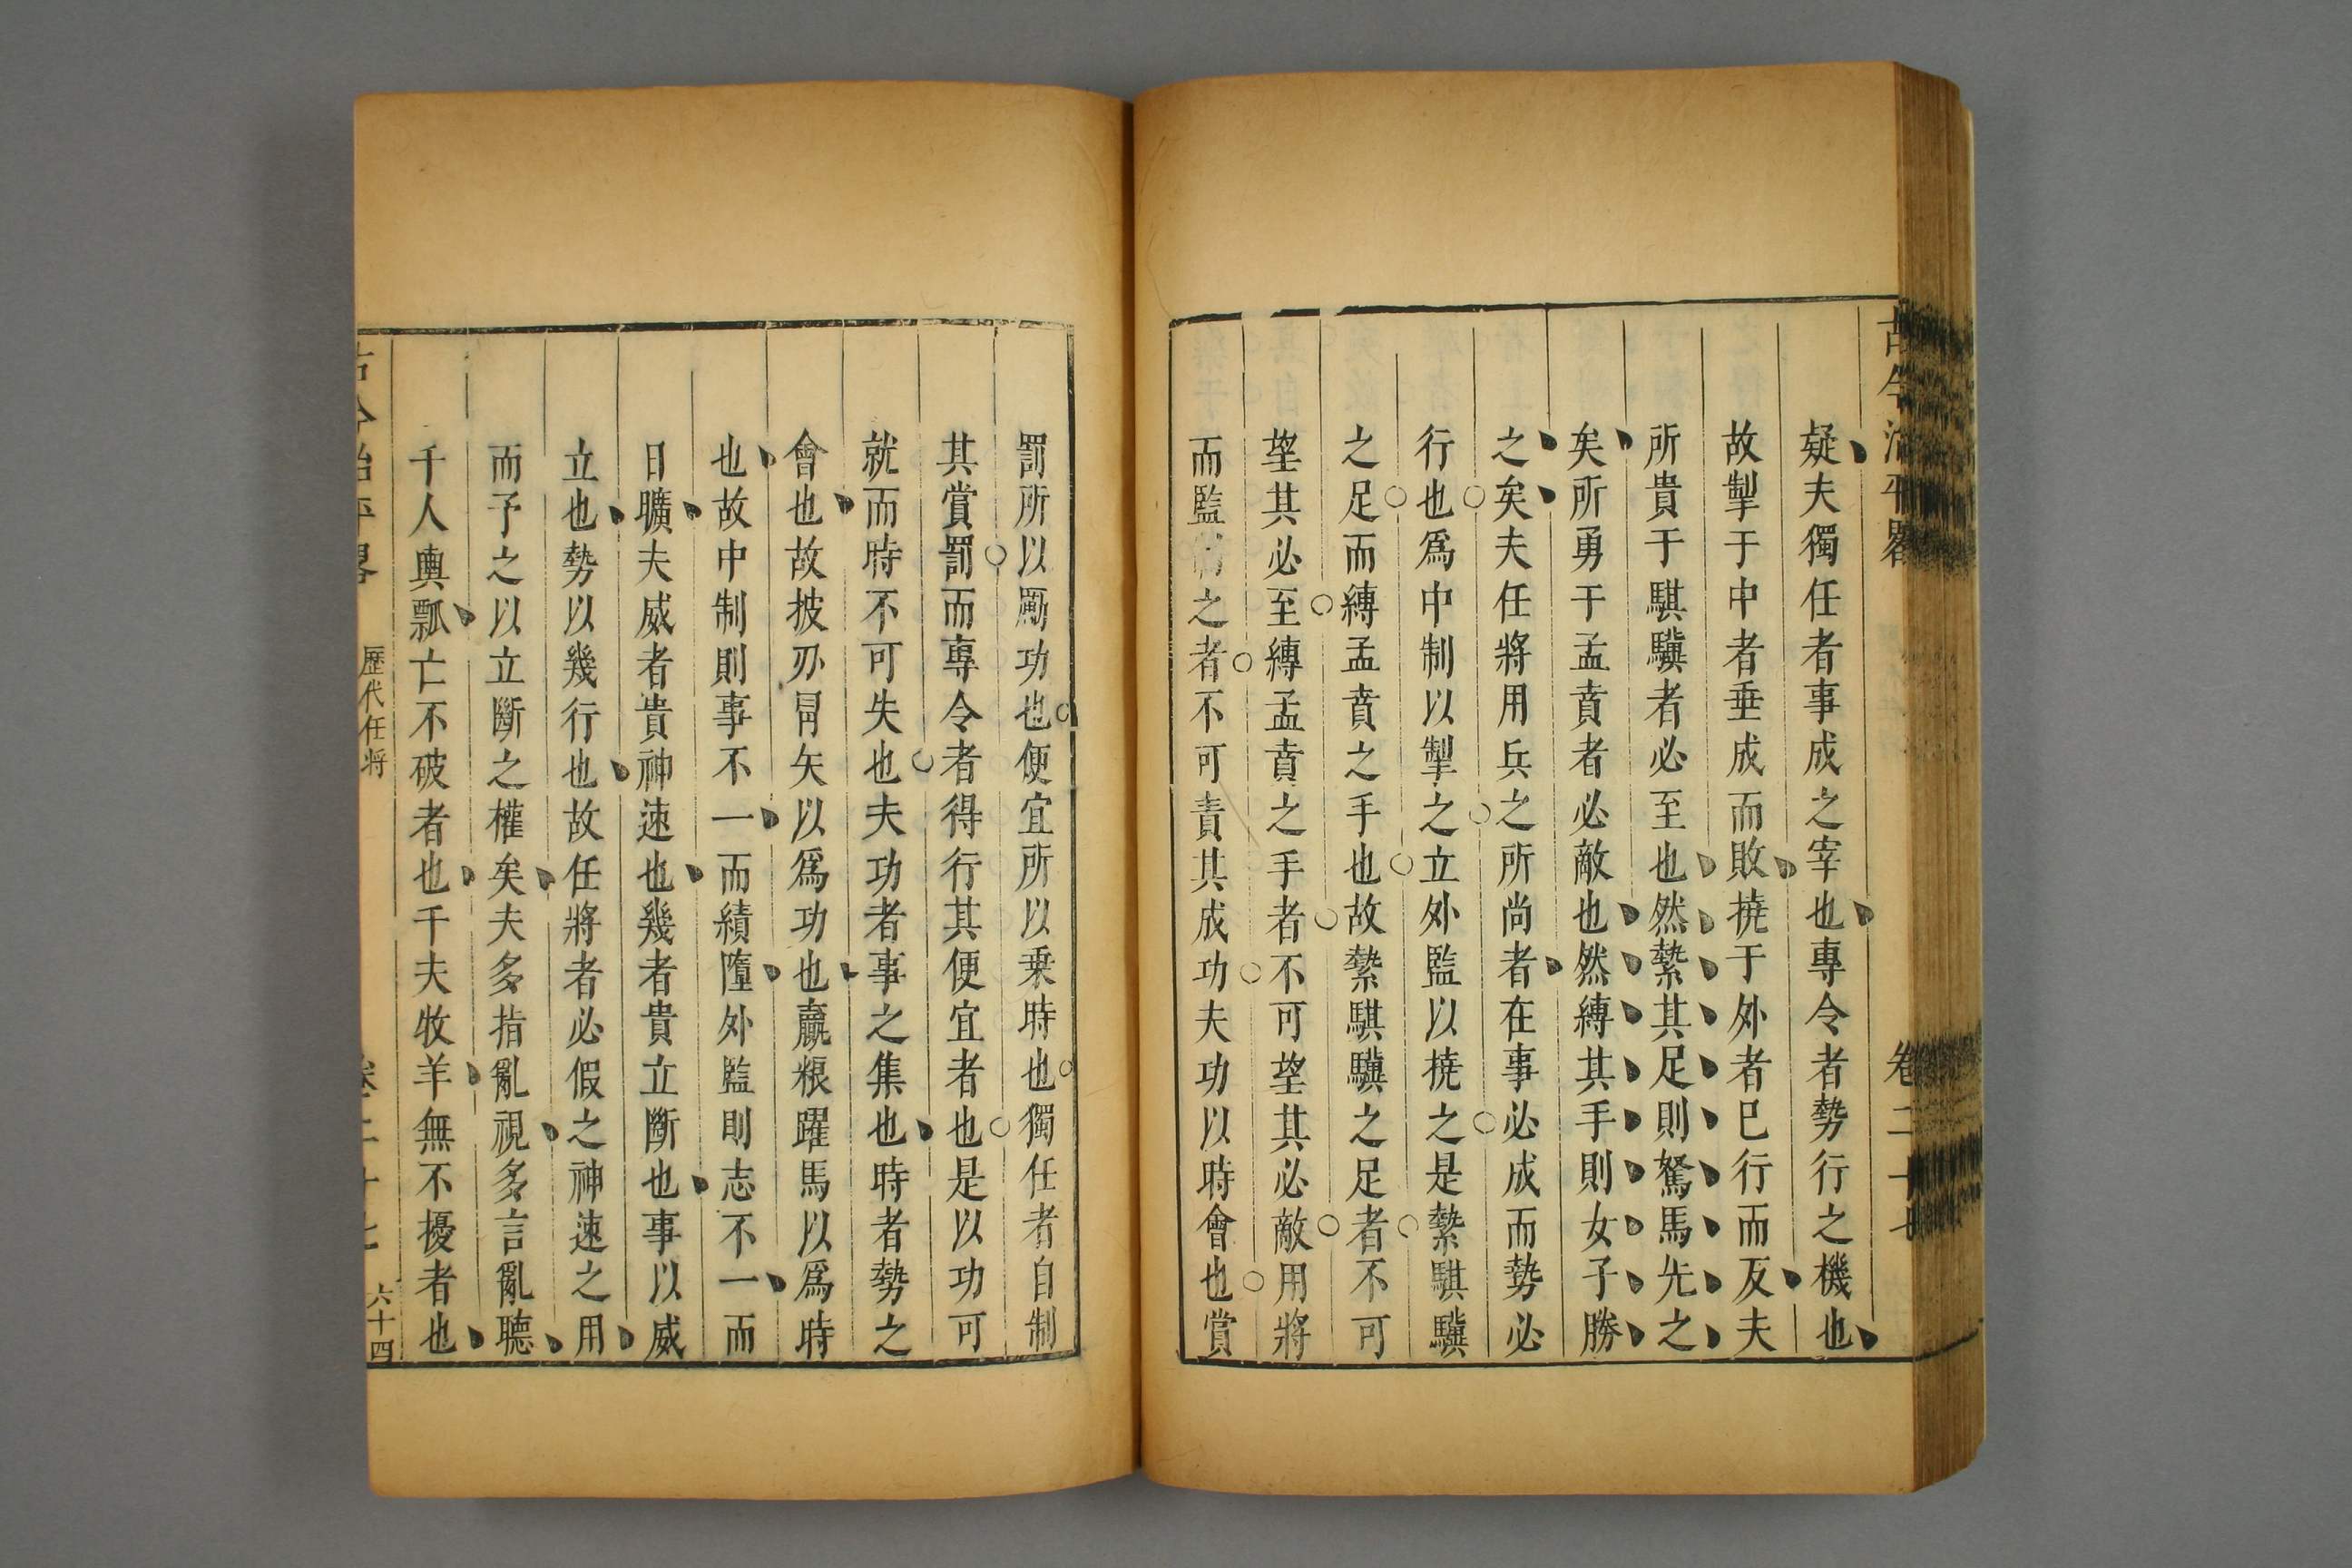 古今治平畧
卷二十七
疑夫獨任者事成之宰也專令者勢行之機也
故掣于中者垂成而敗撓于外者已行而反夫
所貴于騏驥者必至也然縶其足則駑馬先之
矣所勇于孟賁者必敵也然縛其手則女子勝
之矣夫任將用兵之所尚者在事必成而勢必
行也爲中制以掣之立外監以撓之是縶騏驥
之足而縛孟賁之手也故縶騏驥之足者不可
望其必至縛孟賁之手者不可望其必敵用將
而監制之者不可責其成功夫功以時會也賞
罰所以勵功也便宜所以乗時也獨任者自制
其賞罰而專令者得行其便宜者也是以功可
就而時不可失也夫功者事之集也時者勢之
會也故披刃冐矢以爲功也贏粮躍馬以爲時
也故中制則事不一而績隳外監則志不一而
日曠夫威者貴神速也幾者貴立斷也事以威
立也勢以幾行也故任將者必假之神速之用
而予之以立斷之權矣夫多指亂視多言亂聽
千人輿瓢亡不破者也千夫牧羊無不擾者也
古今治平畧
歷代任將
卷二十七
六十四